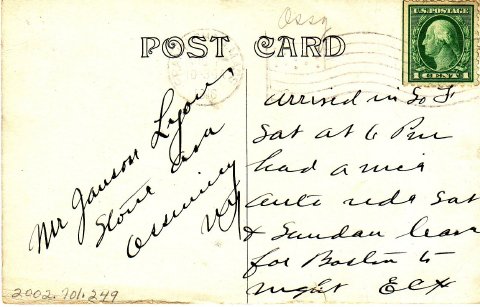 Ossg
POST CARD
U.S. POSTAGE
1 CENT 1
Mr Janson Lyon,
Stone Ava
Ossining
NY
arrived in So F
Sat at 6 Pm
had a nice
auto ride Sat
& Sunday leave
for Boston to
night
2002.701.249